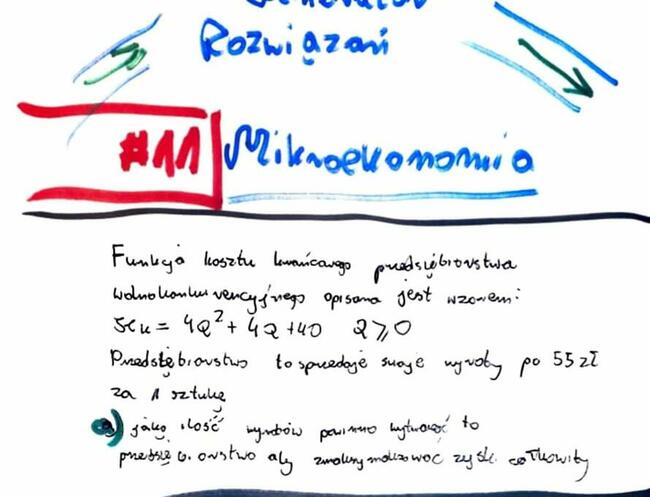 Generator
Rozwiązań
#11 Mikroekonomia
Funkcja kosztu krańcowego przedsiębiorstwa
wolnokonkurencyjnego opisana jest wzorem:
4Q² + 4Q + 40 Q ≥ 0
Przedsiębiorstwo to sprzedaje swoje wyroby po 55 zł
za 1 sztukę
a) jaką ilość wyrobów powinno wytwarzać to
przedsiębiorstwo aby zmaksymalizować zysk całkowity